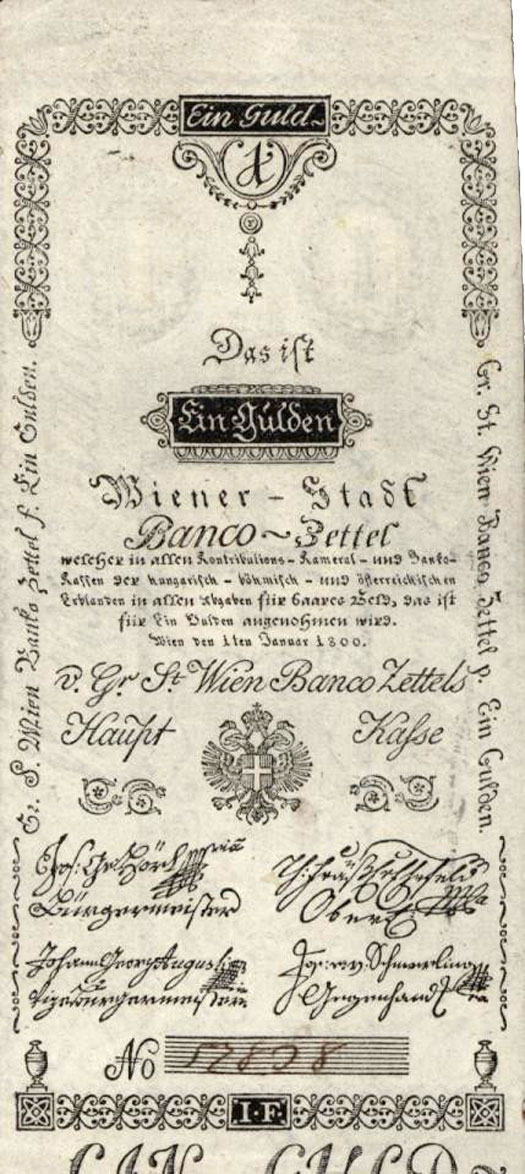 Ein Guld~
1
Das ist
Ein Gulden
Wiener - Stadt
Banco ~ Zettel
welcher in allen Kontributions - Kameral - und Banko-
Kassen der hungarisch - böhmisch - und österreichischen
Erblanden in allen Abgaben für baares Geld, das ist
für Ein Gulden angenohmen wird.
Wien den 1ten Januar 1800.
v. Gr St Wien Banco Zettels
Haupt Kasse
Gr. S. Wien Banko Zettel f. Ein Gulden.
Gr. St. Wien Banco Zettel p. Ein Gulden.
Jos: Ge:
Bürgermeister
Ober
Johann Georg Augusti
Vizebürgermeister
Jos: Schmerling
Gegenhand
No 57828
I·F
EIN GULD